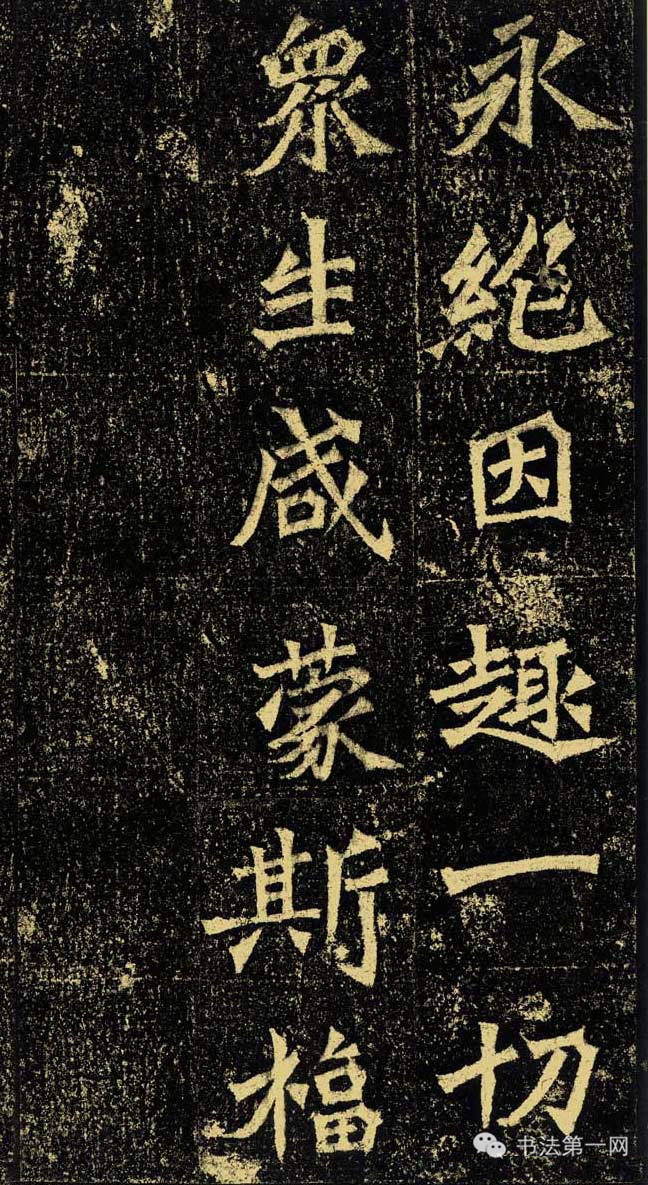 永絶因趣一切
眾生咸蒙斯福
书法第一网